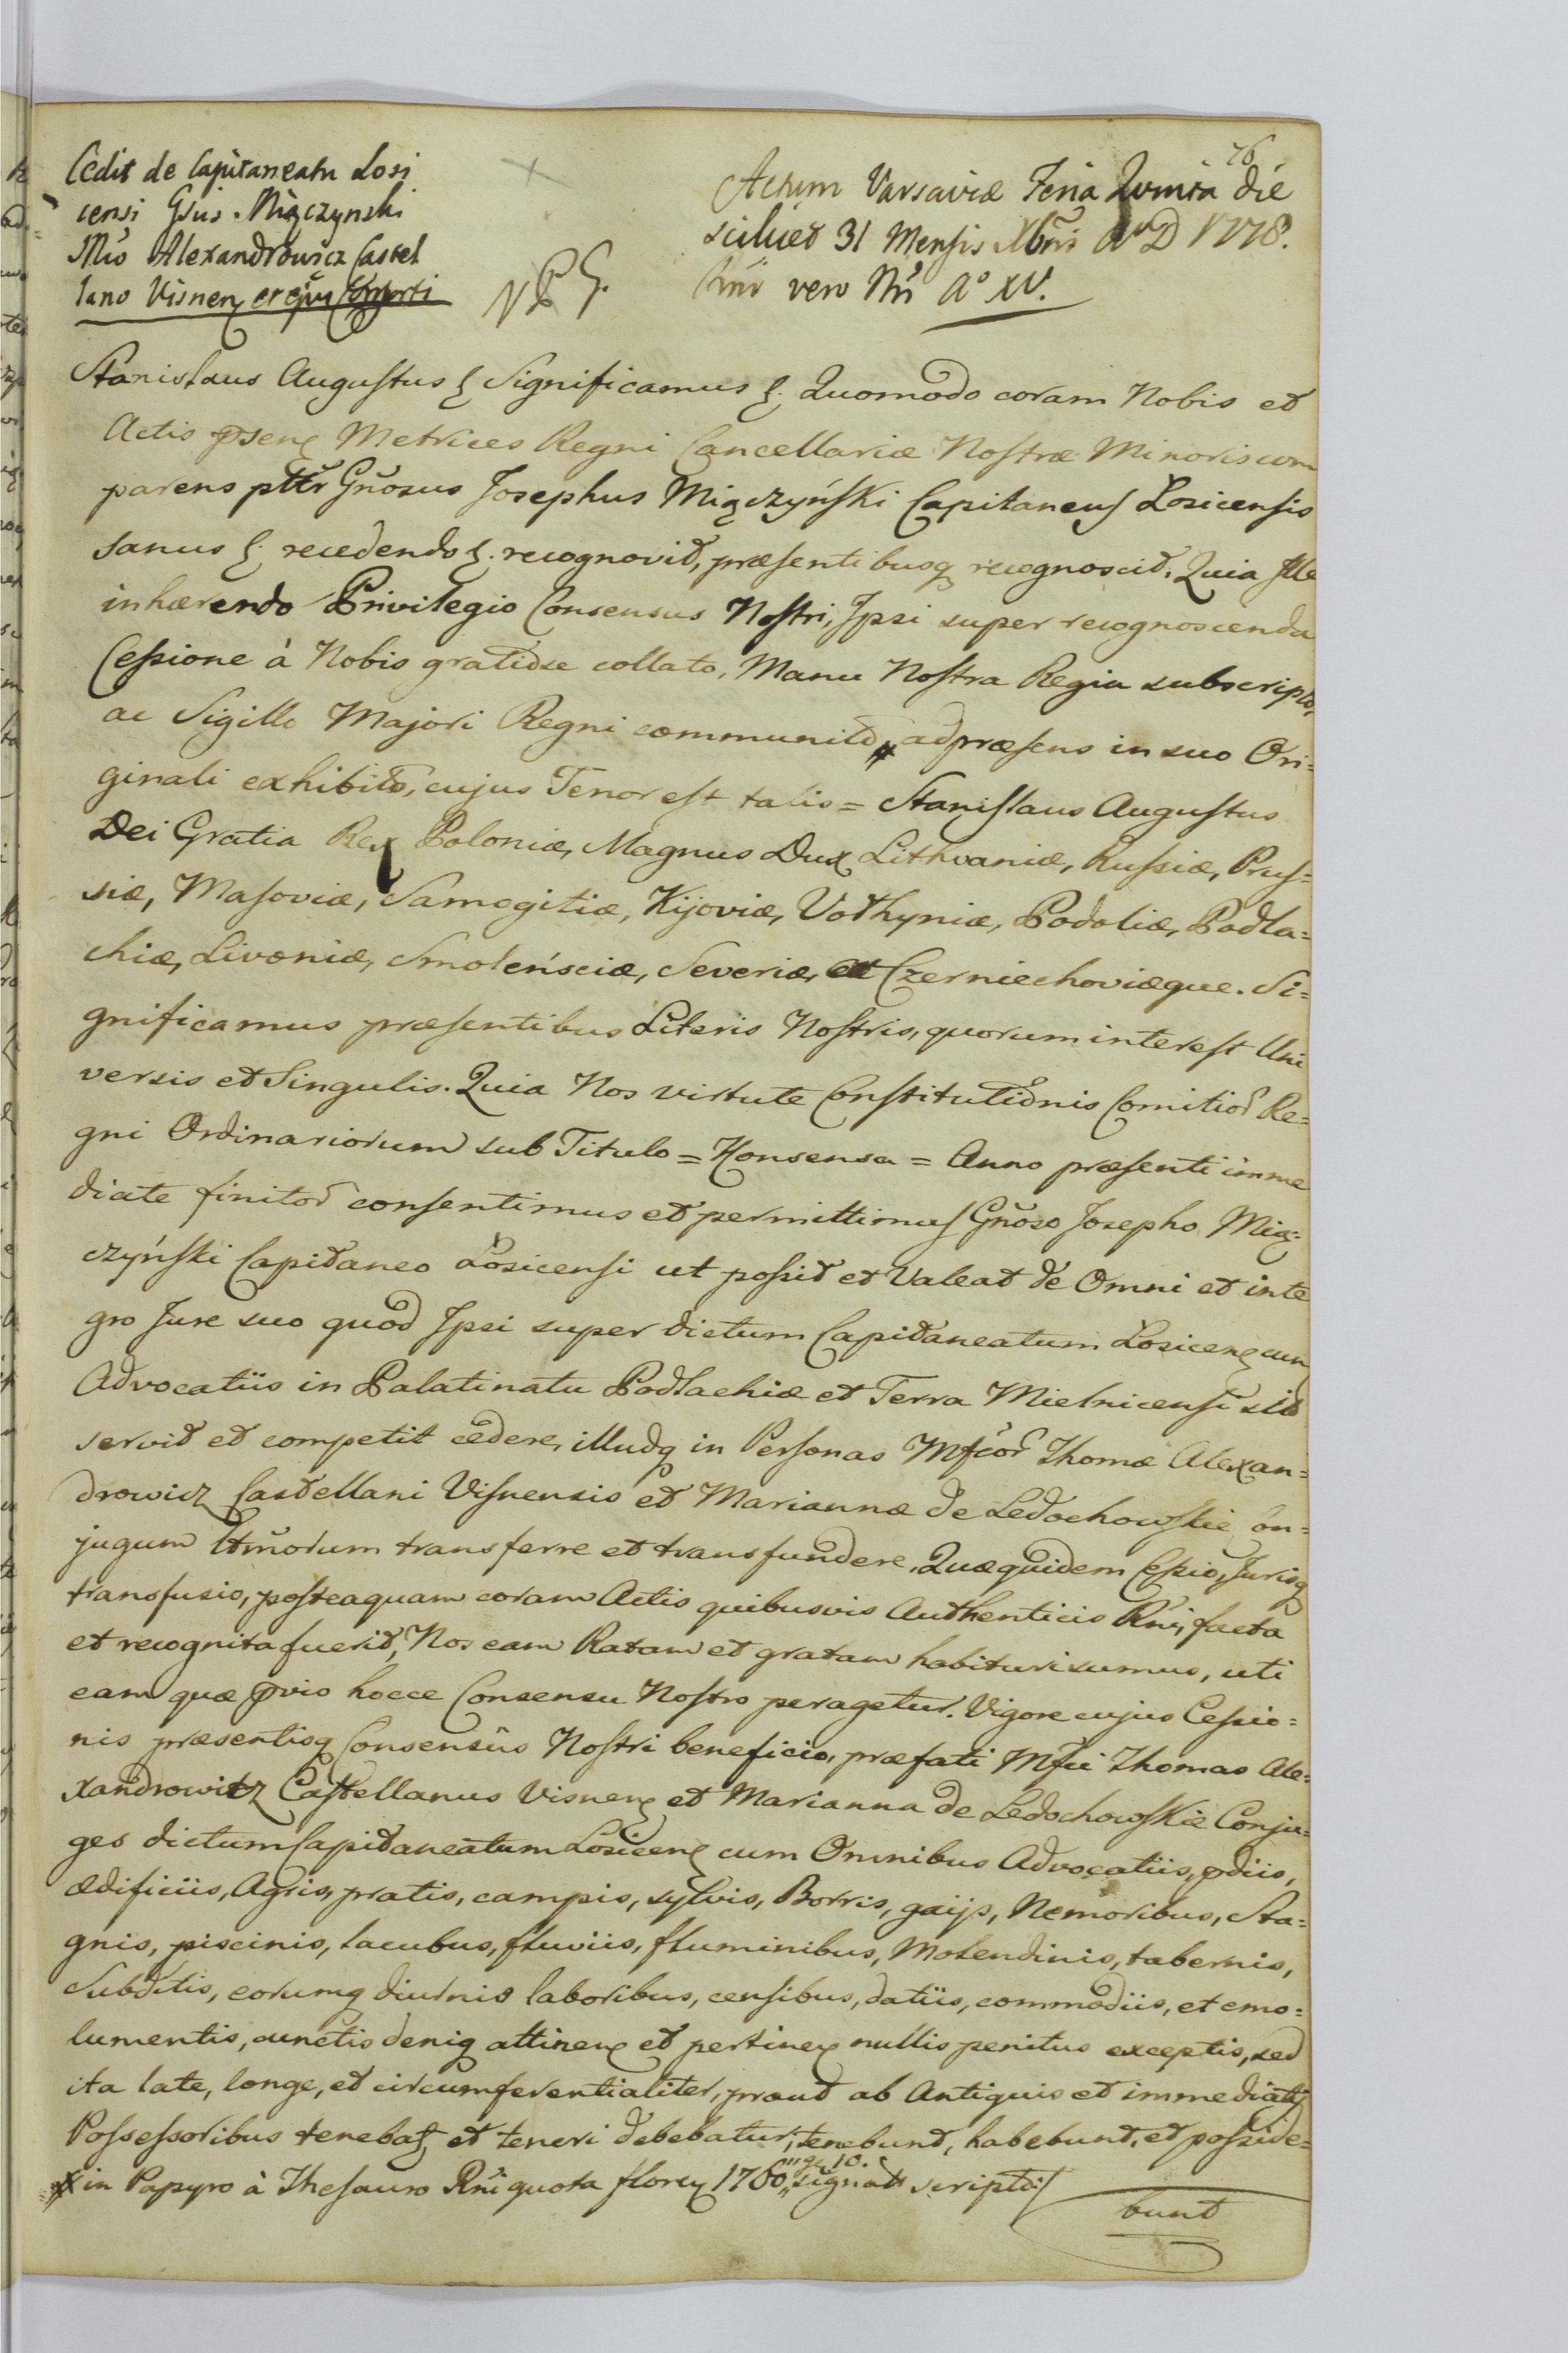 76
Cedit de Capitaneatu Losi
censi Gsus. Miączynski
Mco Alexandrowicz Castel
lano Visnen et ejus Consorti
Actum Varsaviæ Feria Quinta die
scilicet 31 Mensis Xbris A D 1778.
Rñi vero Nri A° XV.
Stanislaus Augustus Significamus Quomodo coram Nobis et
Actis psen Metrices Regni Cancellariæ Nostræ Minoris com
parens pttr Gñosus Josephus Miączyński Capitaneus Losicensis
sanus recedendo recognovit, præsentibusq recognoscit, Quia Ille
inhærendo Privilegio Consensus Nostri, Ipsi super recognoscenda
Cessione à Nobis gratiose collato, Manu Nostra Regia subscripto,
ac Sigillo Majori Regni communito, # ad præsens in suo Ori=
ginali exhibito, cujus Tenor est talis = Stanislaus Augustus
Dei Gratia Rex Poloniæ, Magnus Dux Lithvaniæ, Russiæ, Prus=
siæ, Masoviæ, Samogitiæ, Kijoviæ, Volhyniæ, Podoliæ, Podla=
chiæ, Livoniæ, Smolensciæ, Severiæ, Czerniechoviæque. Si=
gnificamus præsentibus Literis Nostris, quorum interest Uni
versis et Singulis. Quia Nos virtute Constitutionis Comitior Re=
gni Ordinariorum sub Titulo = Konsensa = Anno præsenti imme
diate finitor consentimus et permittimus Gñoso Josepho Mią=
czyński Capitaneo Łosicensi ut possit et Valeat de Omni et inte
gro Jure suo quod Ipsi super dictum Capitaneatum Losicen cum
Advocatiis in Palatinatu Podlachiæ et Terra Mielnicensi sito
servit et competit cedere, illudq in Personas Mfcor Thomæ Alexan=
drowicz Castellani Visnensis et Mariannæ de Ledochowskie Con=
jugum transferre et transfundere. Quæ quidem Cessio, Jurisq
transfusio, posteaquam coram Actis quibusvis Authenticis Rñi, facta
et recognita fuerit, Nos eam Ratam et gratam habituri sumus, uti
eam quæ pvio hocce Consensu Nostro peragetur. Vigore cujus Cessio=
nis præsentisq Consensûs Nostri beneficio, præfati Mfci Thomas Ale=
xandrowicz Castellanus Visnen et Marianna de Ledochowskie Conju=
ges dictum Capitaneatum Losicen cum Omnibus Advocatiis, pdiis,
ædificiis, Agris, pratis, campis, sylvis, Borris, gaijs, Nemoribus, Sta=
gnis, piscinis, lacubus, fluviis, fluminibus, Molendinis, tabernis,
Subditis, eorumq diurnis laboribus, censibus, datiis, commodiis, et emo=
lumentis, cunctis deniq attinen et pertinen nullis penitus exceptis, sed
ita late, longe, et circumferentialiter, prout ab Antiquis et immediatis
Possessoribus tenebat et teneri debebatur, tenebunt, habebunt, et posside=
# in Papyro à Thesauro Rñi quota floren 1760 gr 10. signato scripto
bunt